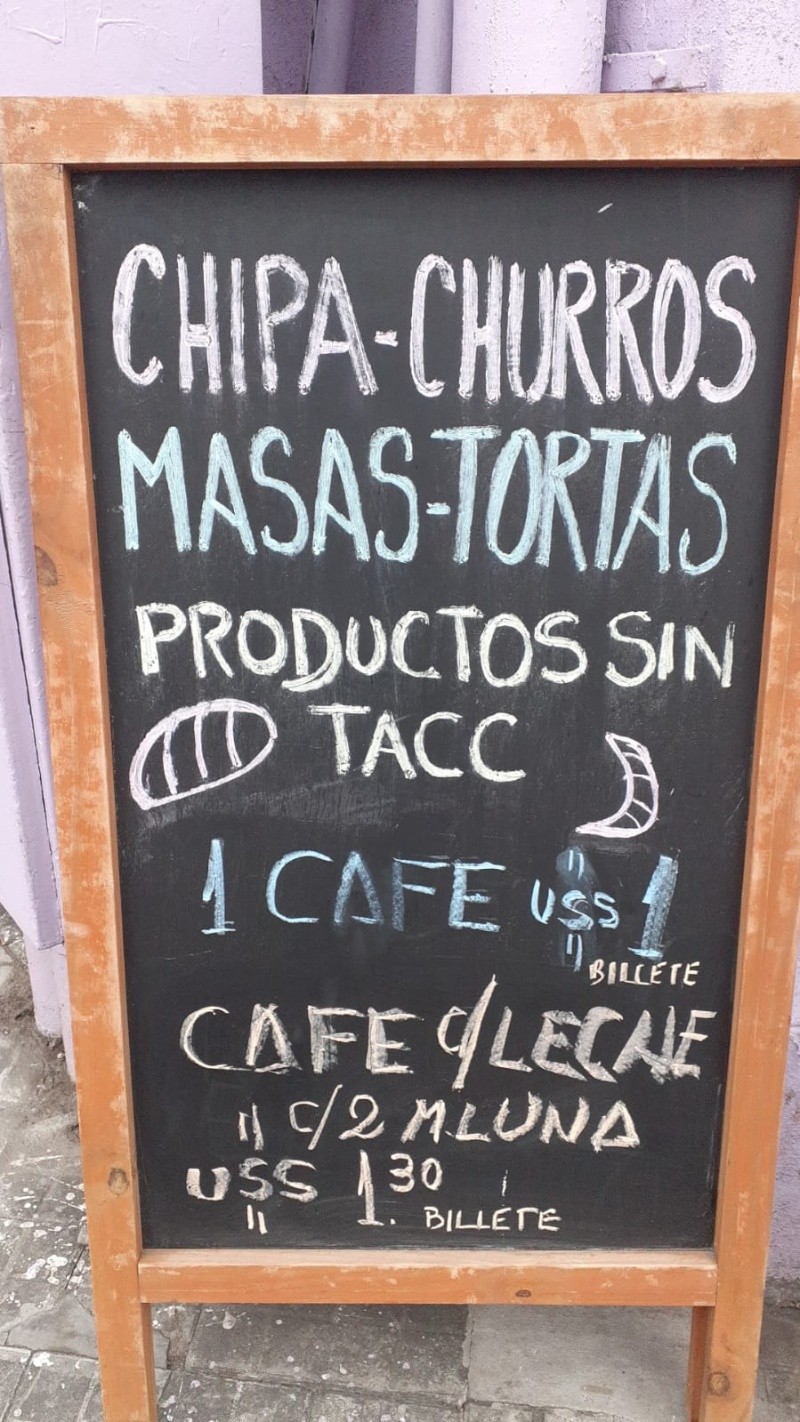 CHIPA-CHURROS
MASAS-TORTAS
PRODUCTOS SIN
TACC
1 CAFE U$S 1
BILLETE
CAFE C/LECHE
" C/2 M.LUNA
U$S 1.30
BILLETE